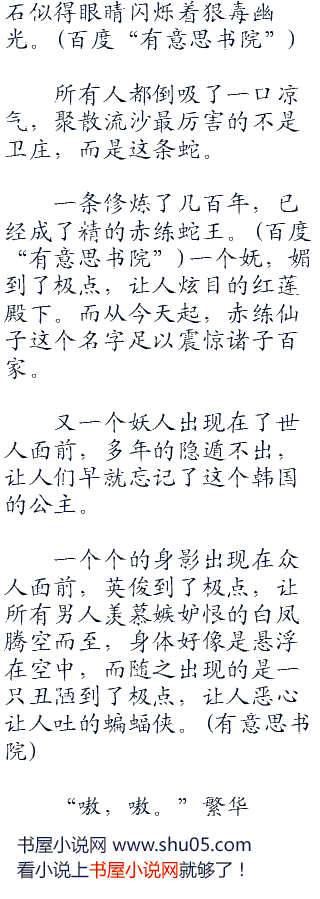 石似得眼睛闪烁着狠毒幽
光。(百度“有意思书院”)
所有人都倒吸了一口凉
气，聚散流沙最厉害的不是
卫庄，而是这条蛇。
一条修炼了几百年，已
经成了精的赤练蛇王。(百度
“有意思书院”)一个妩，媚
到了极点，让人炫目的红莲
殿下。而从今天起，赤练仙
子这个名字足以震惊诸子百
家。
又一个妖人出现在了世
人面前，多年的隐遁不出，
让人们早就忘记了这个韩国
的公主。
一个个的身影出现在众
人面前，英俊到了极点，让
所有男人羡慕嫉妒恨的白凤
腾空而至，身体好像是悬浮
在空中，而随之出现的是一
只丑陋到了极点，让人恶心
让人吐的蝙蝠侠。(有意思书
院)
“嗷，嗷。”繁华
书屋小说网 www.shu05.com
看小说上书屋小说网就够了！